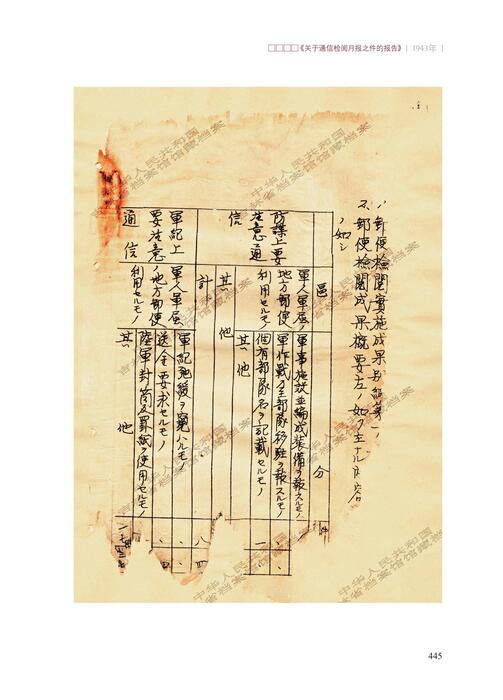 □□□□《关于通信检阅月报之件的报告》 | 1943年 |
八、郵便檢閲實施成果別紙第一ノ如シ
2、郵便檢閲成果概要左ノ如ク主ナル内容
區分
防諜上要注意通信
軍人軍屬ノ地方郵便利用セルモノ
軍事施設並編成装備ヲ報スルモノ
軍作戰ノ爲部隊移駐ヲ報スルモノ
個有部隊名ヲ記載セルモノ
其他
其他
計
八四
軍紀上要注意通信
軍人軍屬ノ地方郵便利用セルモノ
軍記弛緩ヲ窺ハルモノ
送金要求セルモノ
陸軍封筒及罫紙ヲ使用セルモノ
其他
中华人民共和国
吉林省档案馆馆藏档案
445